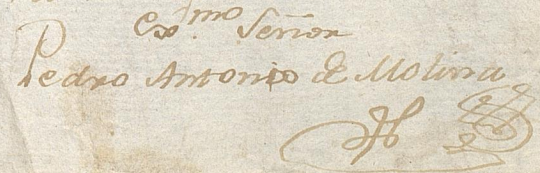 Exmo Señor
Pedro Antonio de Molina